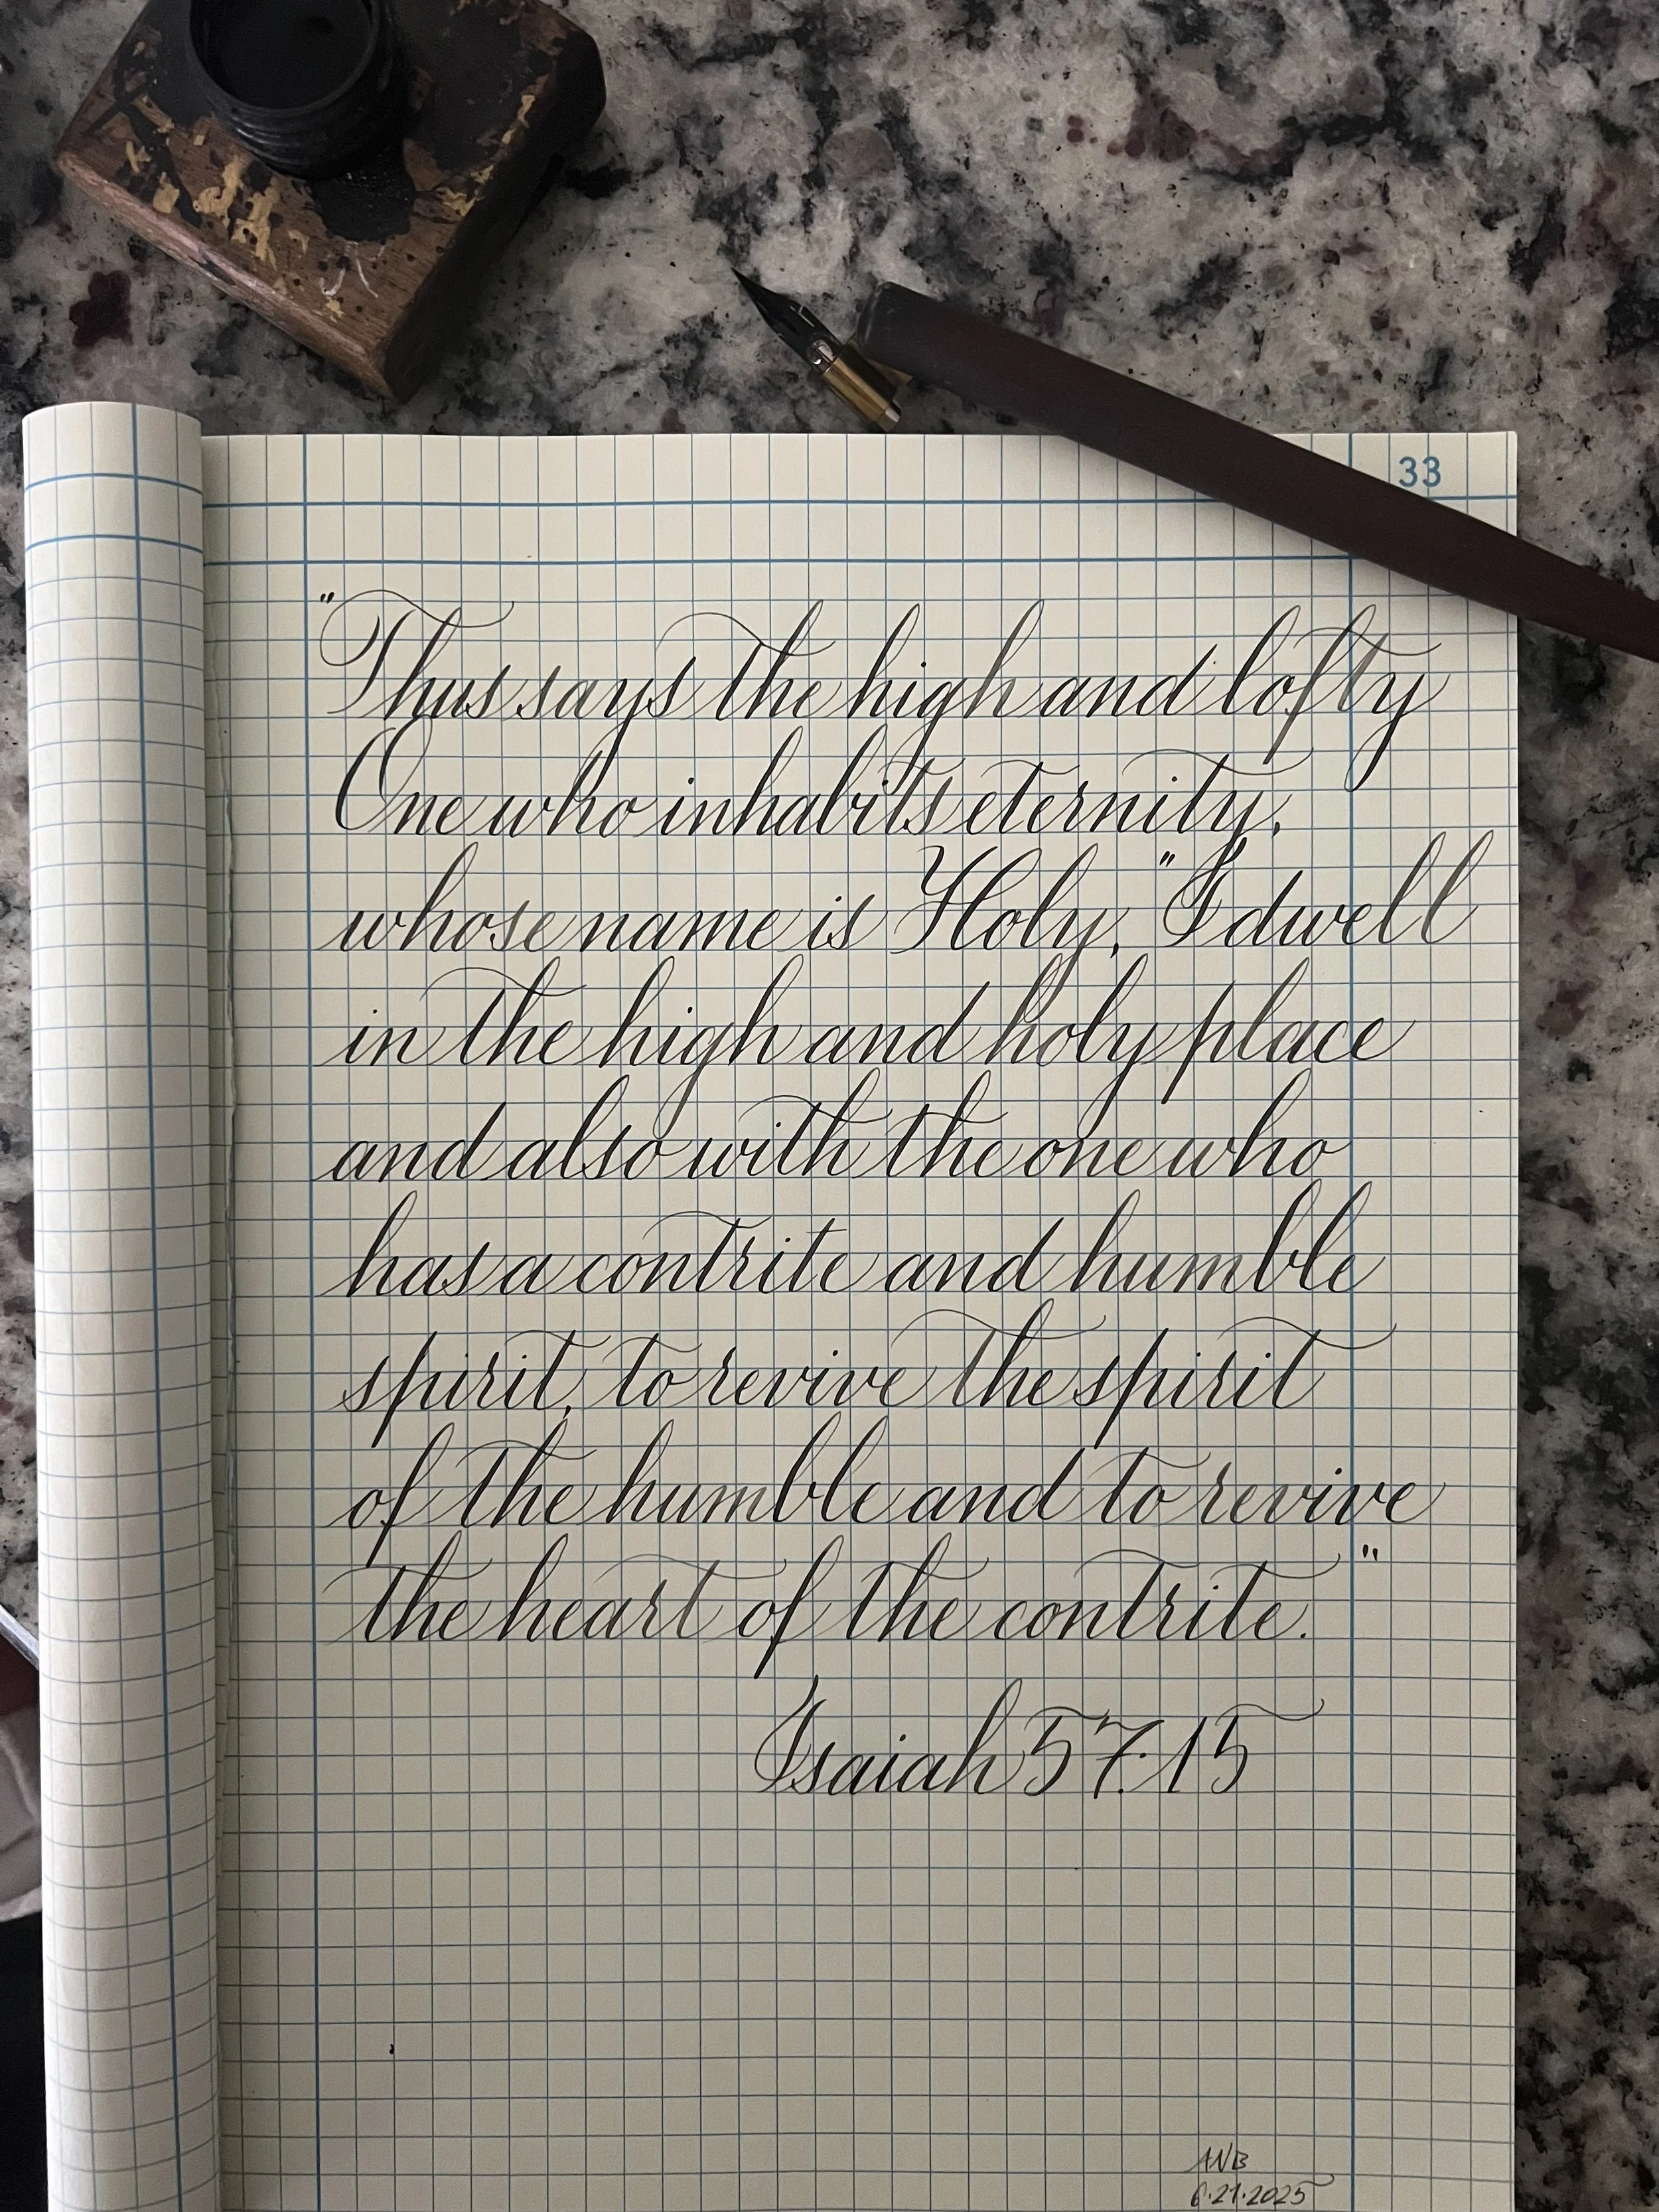 33
"Thus says the high and lofty
One who inhabits eternity,
whose name is Holy, "I dwell
in the high and holy place
and also with the one who
has a contrite and humble
spirit, to revive the spirit
of the humble and to revive
the heart of the contrite."
Isaiah 57:15
ANB
6.21.2025